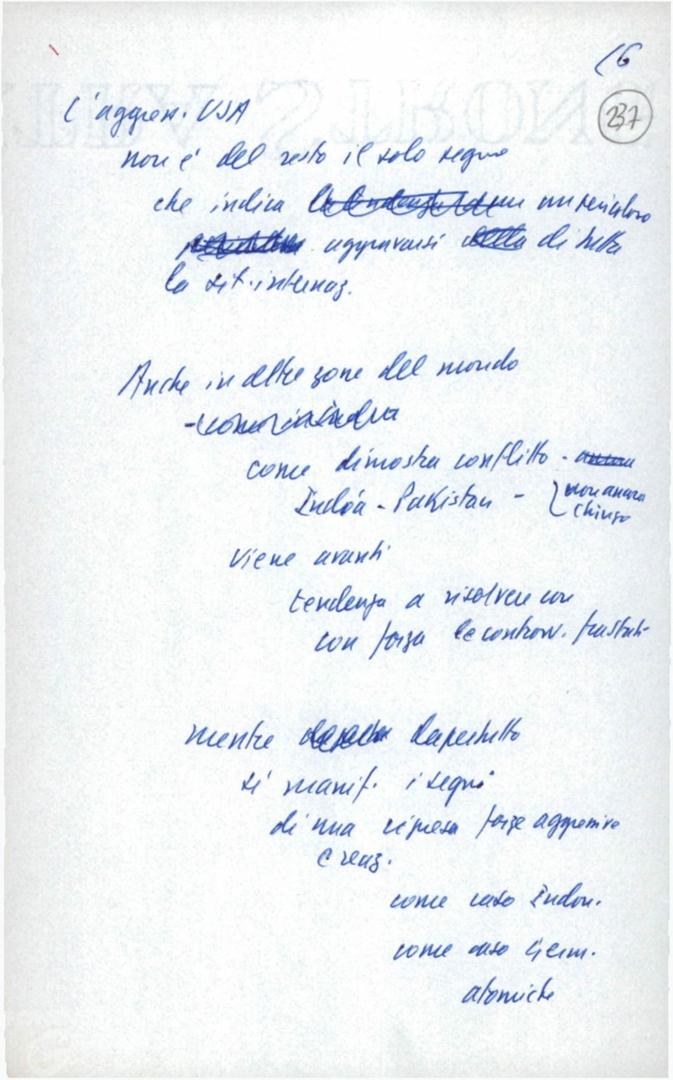 16
237
L'aggress. USA
non è del resto il solo segno
che indica un pericoloso
aggravarsi di tutta
la sit. internaz.
Anche in altre zone del mondo
come dimostra conflitto -
India - Pakistan - non ancora
chiuso
viene avanti
tendenza a risolvere con
con forza le controv.
mentre dapertutto
si manif. i segni
di una ripresa forze aggressive
e reaz.
come caso Indon.
come caso Germ.
atomiche